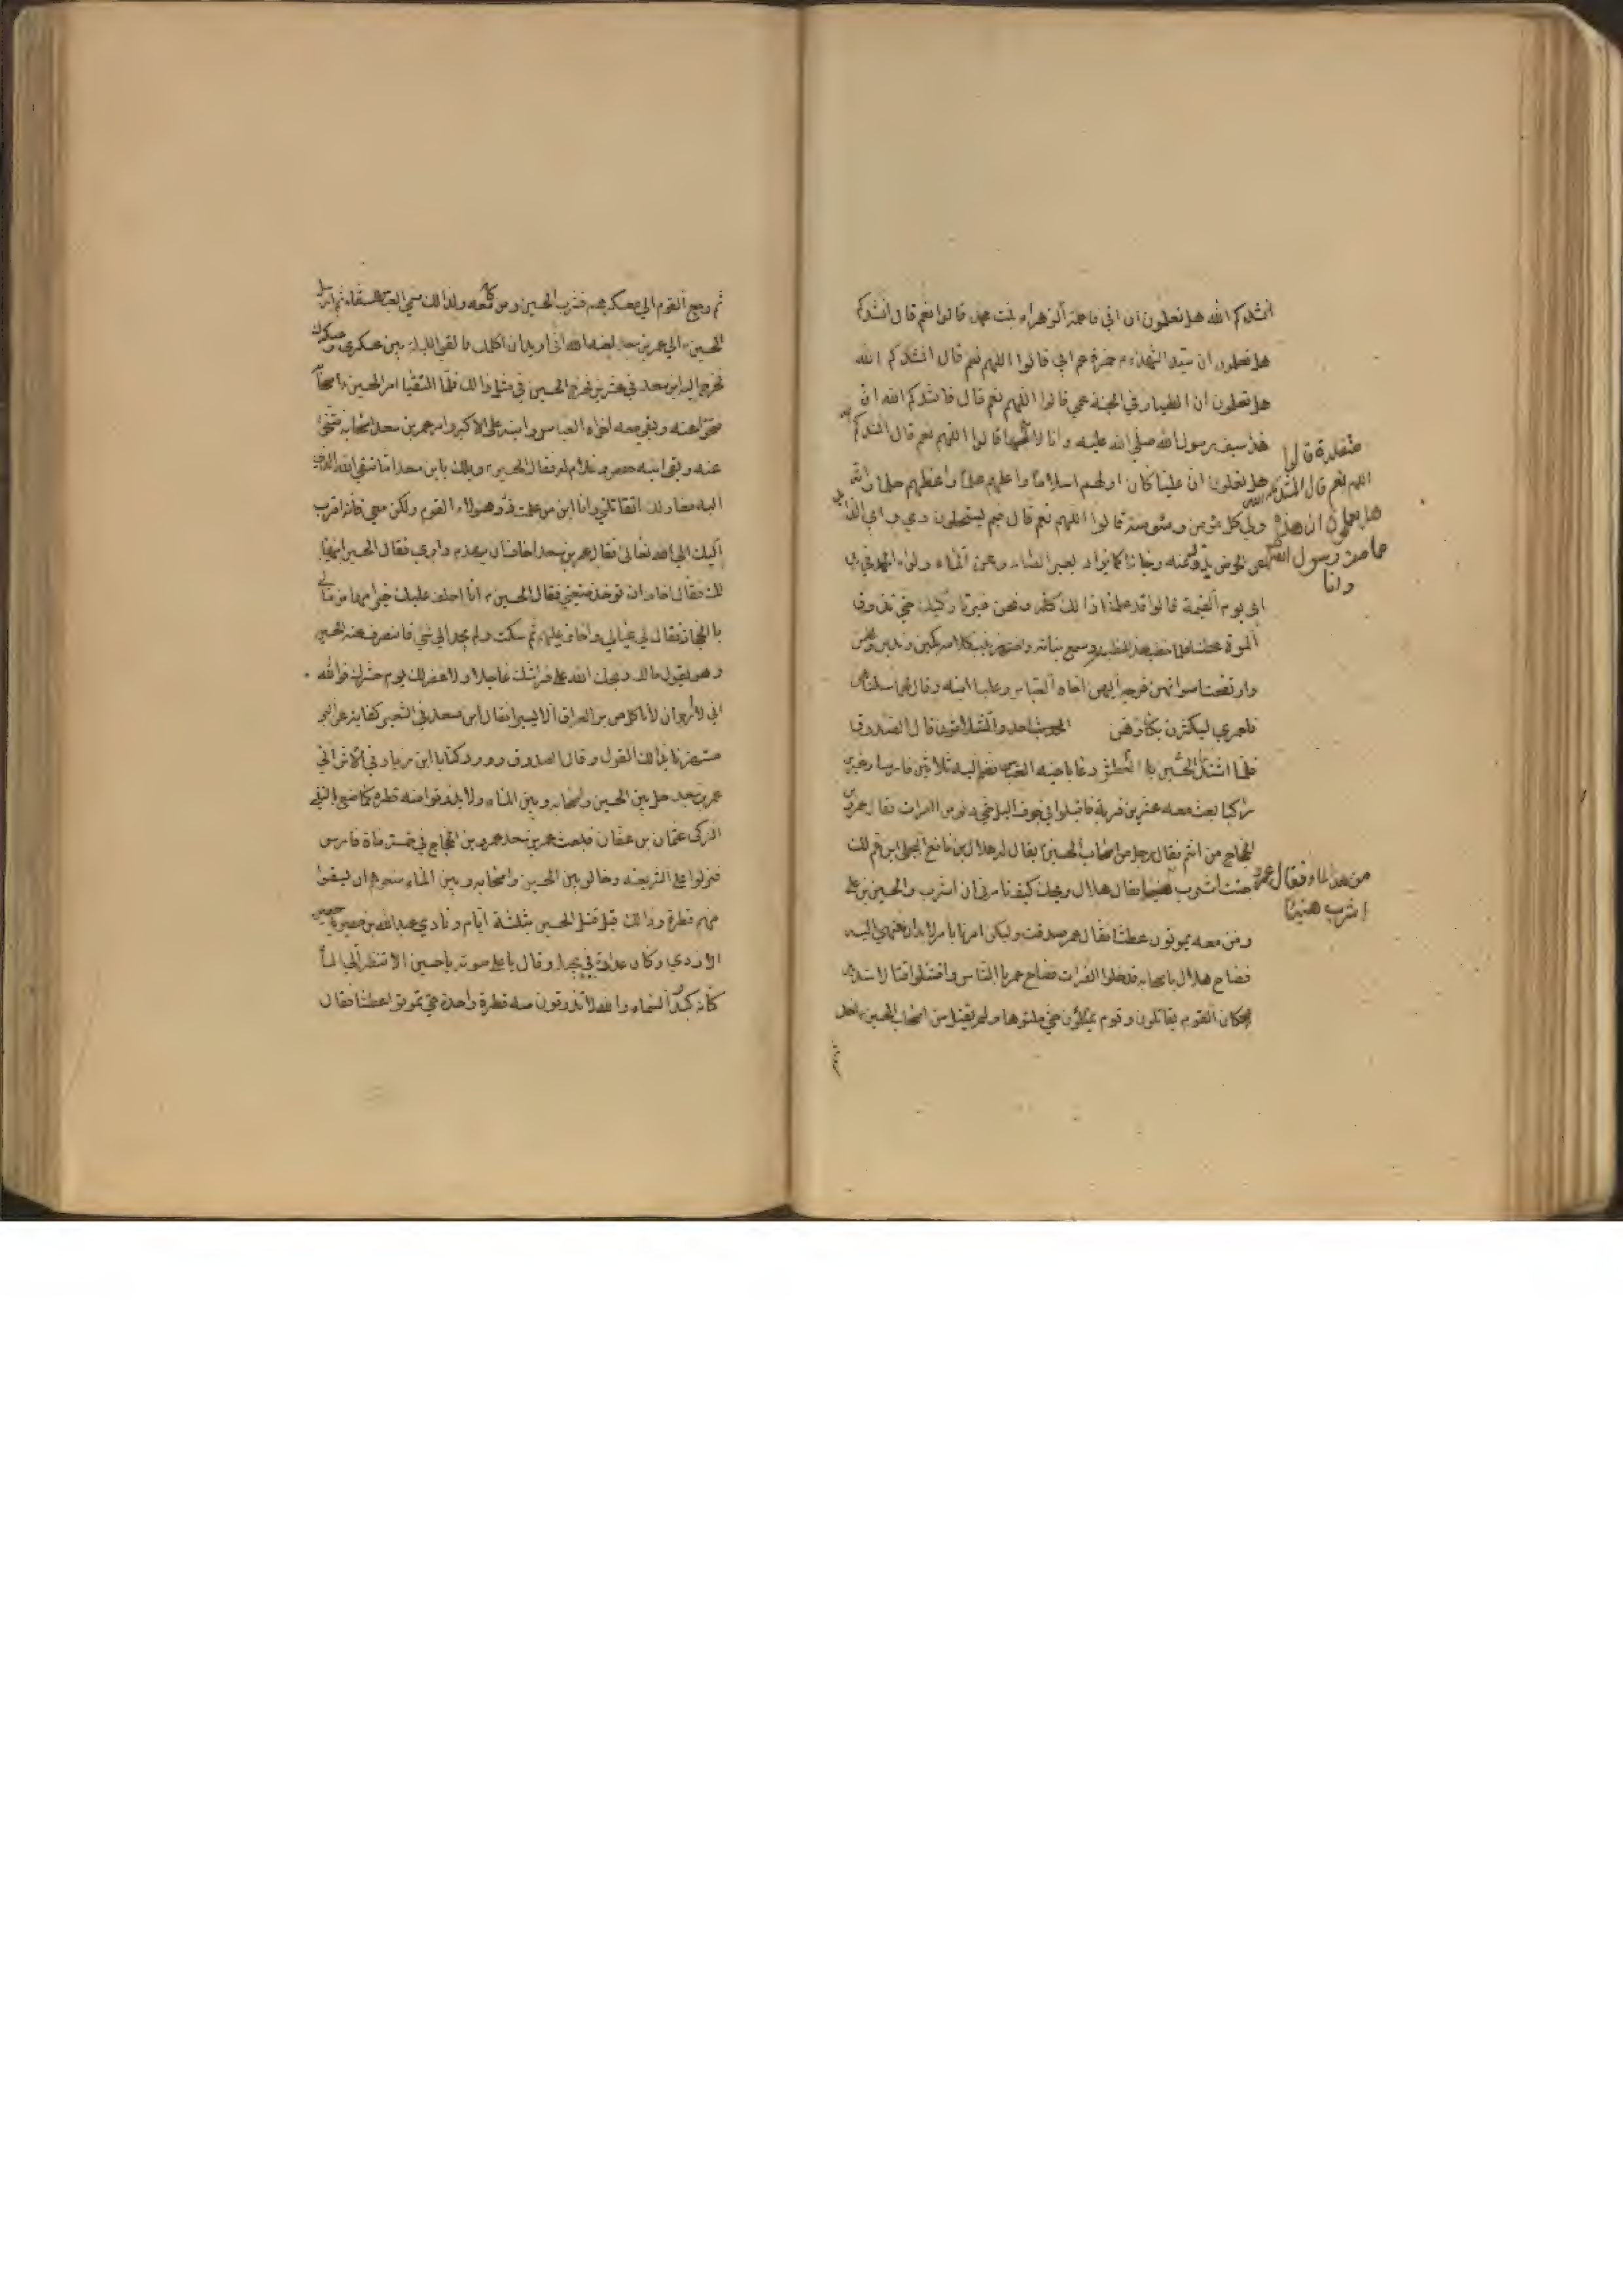 انشدكم الله هل تعلمون ان امي فاطمة الزهراء بنت محمد قالوا نعم قال انشدكم
هل تعلمون ان سيد الشهداء حمزة عم ابي قالوا اللهم نعم قال انشدكم الله
هل تعلمون ان الطيار في الجنة عمي قالوا اللهم نعم قال فانشدكم الله ان
هذ سيف رسول الله صلى الله عليه وانا قالوا اللهم نعم قال انشدكم الله
هل تعلمون ان عليا كان اولهم اسلاما واعلمهم علما واعظمهم حلما وانه
ولي كل مؤمن ومؤمنة قالوا اللهم نعم قال فبم تستحلون دمي وابي الذائد
عن الحوض يذود عنه رجالا كما يزاد بعير الصاد عن الماء ولواء الحمد في يد
ابي يوم القيمة قالوا قد علمنا ذالك كله ونحن غير تاركيك حتى تذوق
الموت عطشا فلما خطب هذ الخطبة وسمع بناته واخته زينب كلامه بكين وندبن
وارتفعت اصواتهن فوجه اليهن اخاه العباس وعليا ابنه وقال لهما سكتاهن
فلعمري ليكثرن بكاؤهن المجلس الحادي والثلاثون قال الصدوق
فلما اشتد الحسين با العطش دعا باخيه العباس فضم اليه ثلاثين فارسا وعشرين
راكبا بعث معه عشرين قربة فاقبلوا في جوف اليل حتى دنو من الفرات فقال عمرو بن
الحجاج من انتم فقال رجل من اصحاب الحسين يقال له هلال بن نافع البجلي ابن عم لك
جئت اشرب فقال هلال ويحك كيف تامرني ان اشرب والحسين بن علي
ومن معه يموتون عطشا فقال عمر صدقت ولكن امرنا بامر لابد ان ننتهي اليه
فصاح هلال باصحابه فدخلوا الفرات فصاح عمر با الناس واقتتلوا قتالا شديدا
فكان القوم يقاتلون وقوم يملئون حتى ملئوها ولم يقتل من اصحاب الحسين احد
ثم
متقلده قالوا
اللهم نعم قال انشدكم الله
هل تعلمون ان هذه
عمامة رسول الله
وانا
من هذ الماء فقال عمرو
اشرب هنيئا
ثم رجع القوم الى معسكرهم فشرب الحسين ومن كان معه ولذالك سمي العباس السقاء ثم ارسل
الحسين الى عمر بن سعد لعنه الله اني اريد ان اكلمك فالقني الليلة بين عسكري وعسكرك
فخرج اليه ابن سعد في عشرين فخرج الحسين في مثل ذالك فلما التقيا امر الحسين اصحابه
فتنحوا عنه وبقي معه اخواه العباس وابنه علي الاكبر وامر عمر بن سعد اصحابه فتنحوا
عنه وبقي ابنه حفص وغلام له فقال الحسين ويلك يابن سعد اما تتقي الله الذي
اليه معادك اتقاتلني وانا ابن من علمت ذر هولاء القوم وكن معي فانه اقرب
اليك الى الله تعالى فقال عمر بن سعد اخاف ان يهدم داري فقال الحسين ابنيها
لك فقال اخاف ان توخذ ضيعتي فقال الحسين انا اخلف عليك خيرا منها من مالي
با الحجاز فقال لي عيالي واخاف عليهم ثم سكت ولم يجبه الى شئ فانصرف عنه الحسين
وهو يقول مالك ذبحك الله على فراشك عاجلا ولا غفر لك يوم حشرك فوالله
اني لارجو ان لا تاكل من بر العراق الا يسيرا فقال ابن سعد في الشعير كفاية عن البر
مستهزئا بذالك القول وقال الصدوق وورد كتاب ابن زياد في الاثر الى
عمر بن سعد حل بين الحسين واصحابه وبين الماء ولا يذوقوا منه قطرة كما صنع با التقي
الزكي عثمان بن عفان فبعث عمر بن سعد عمرو بن الحجاج في خمسمائة فارس
فنزلوا على الشريعة وحالو بين الحسين واصحابه وبين الماء منعوهم ان يسقوا
منه قطرة وذالك قبل قتل الحسين بثلثة ايام ونادى عبد الله بن حصين
الازدي وكان عداده في بجيلة وقال باعلى صوته ياحسين الا تنظر الى الماء
كانه كبد السماء والله لا تذوقون منه قطرة واحدة حتى تموتوا عطشا فقال